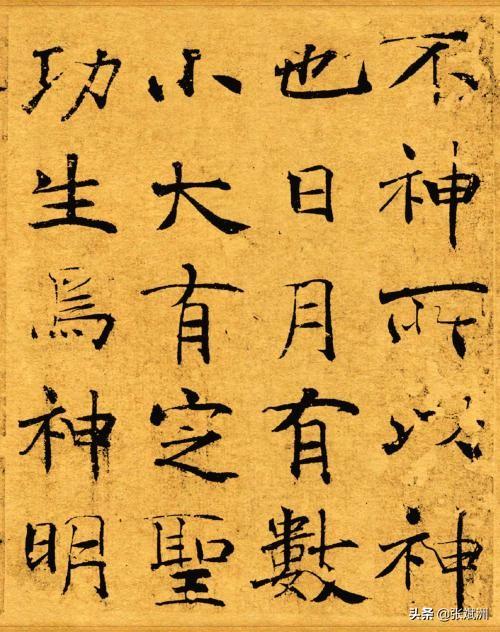 不神所以神
也日月有數
小大有定聖
功生焉神明
头条 @张斌洲